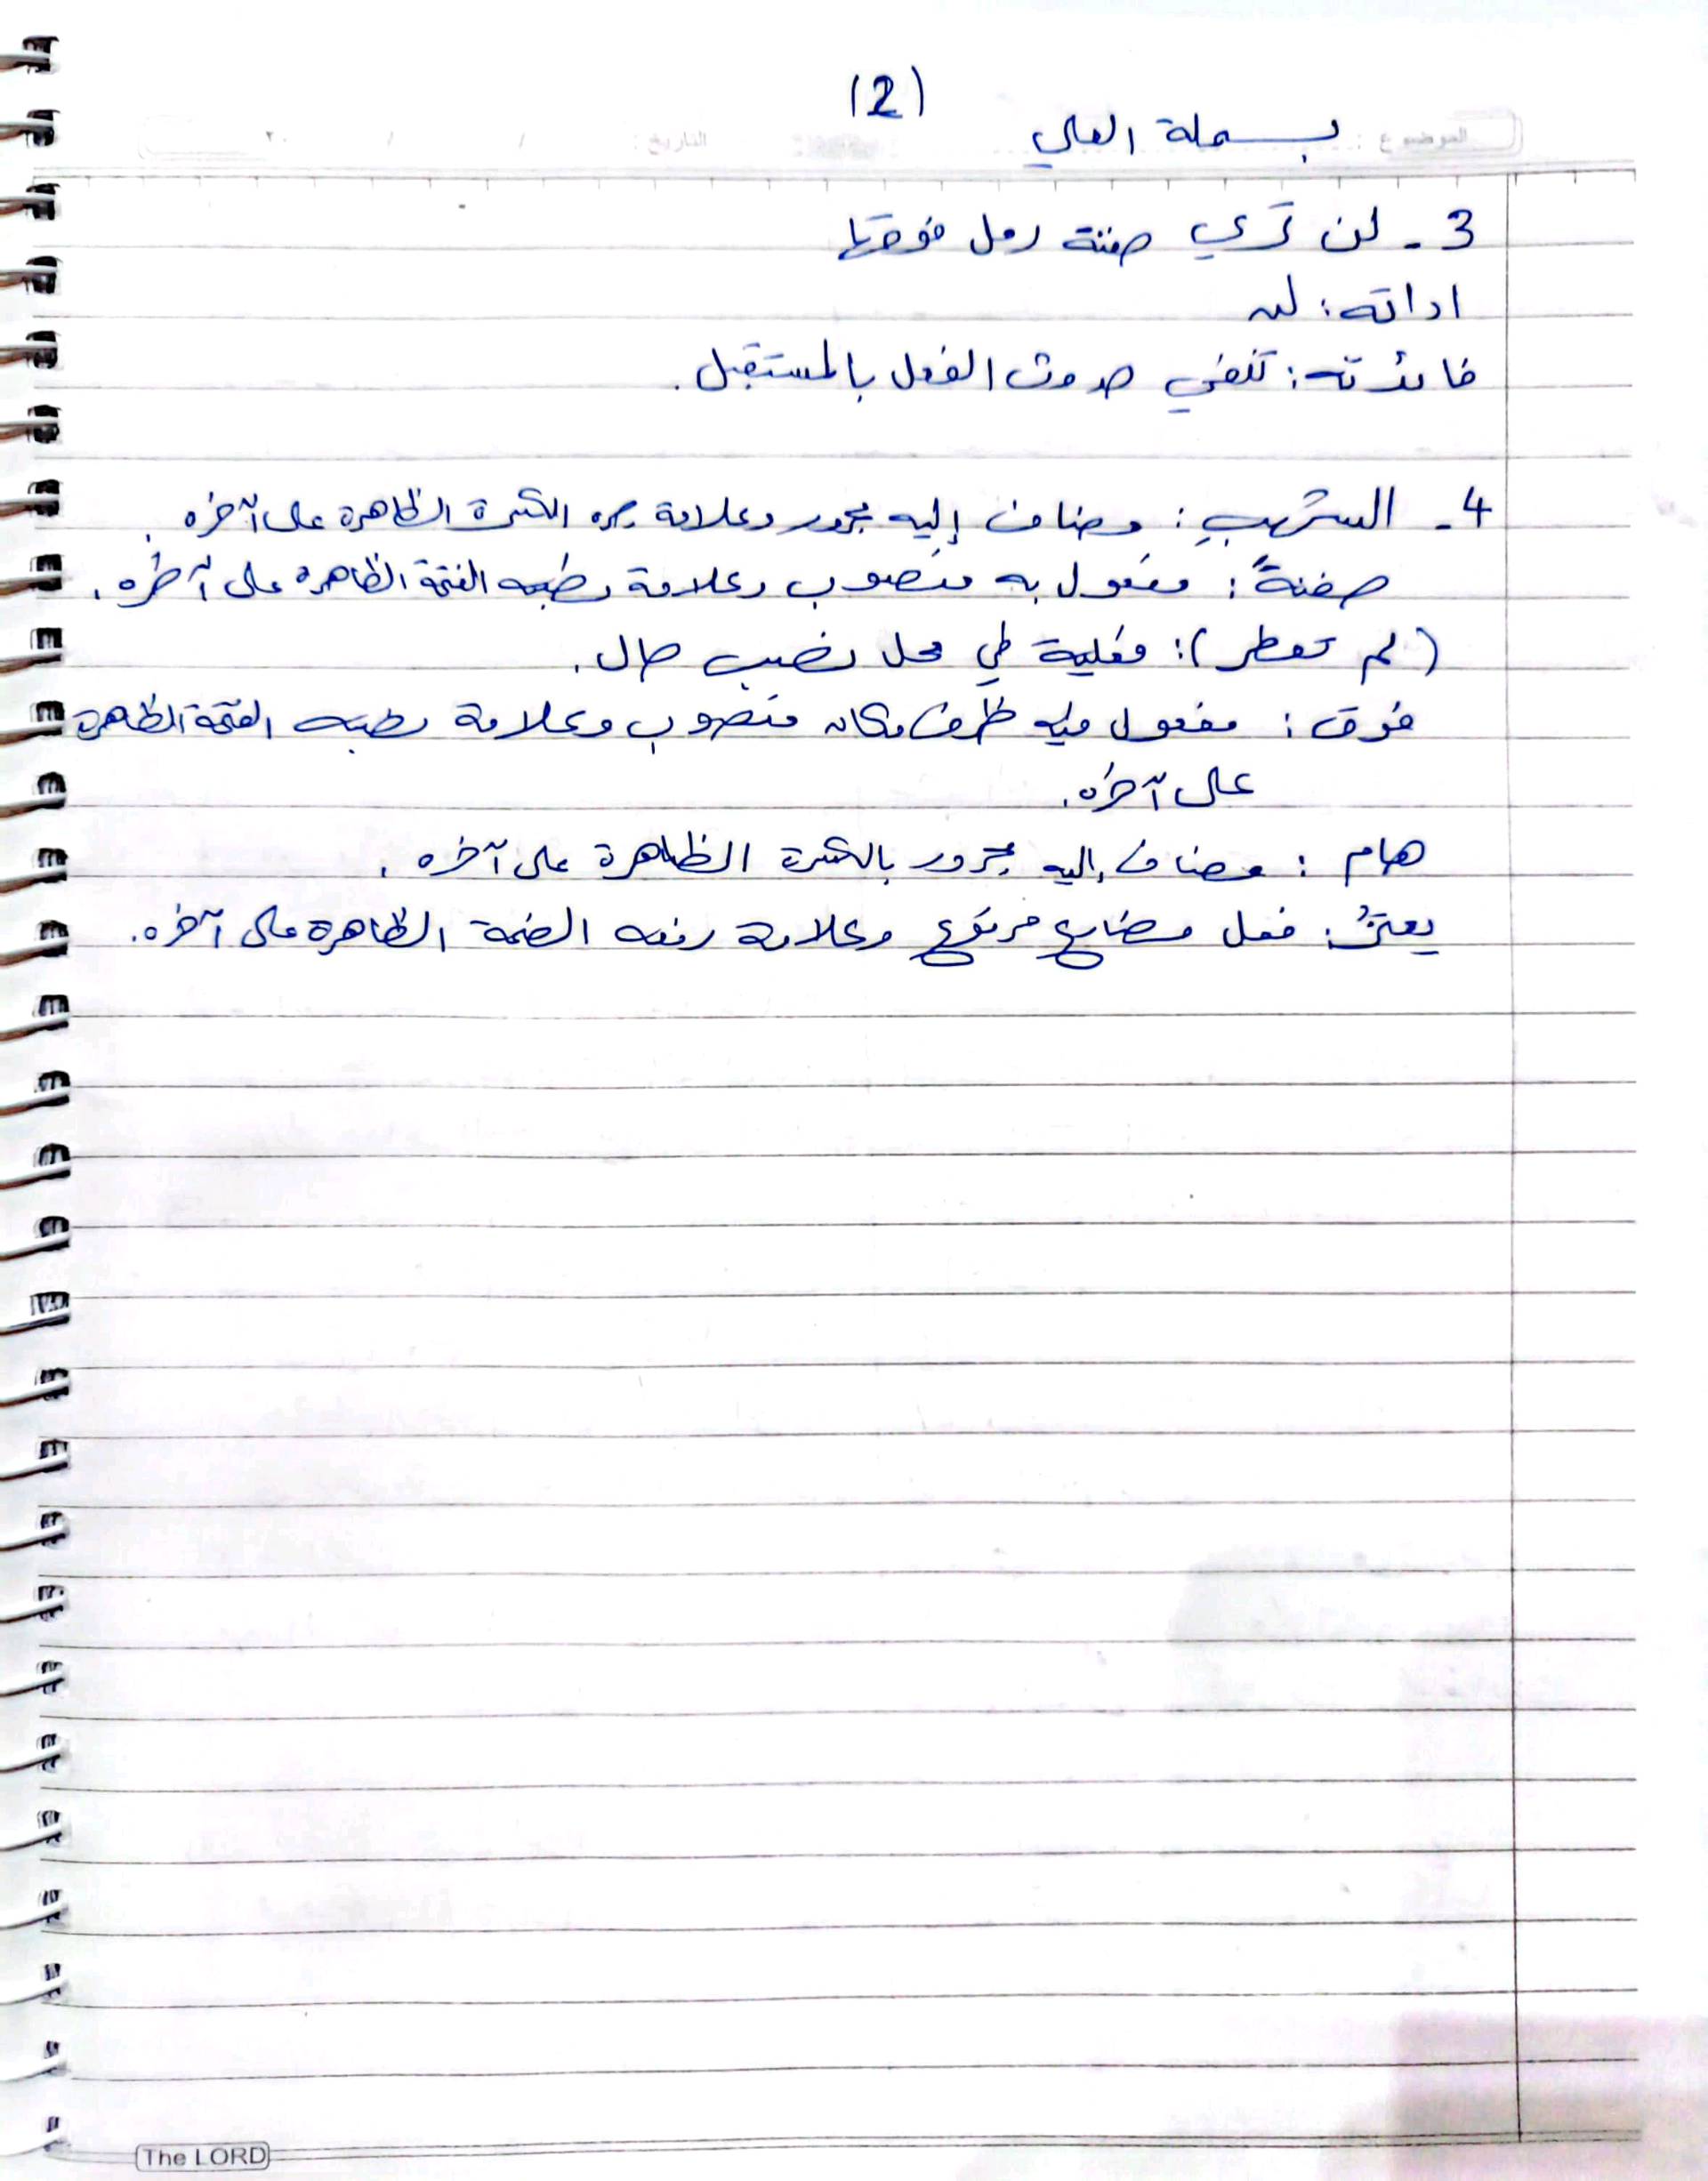 (2)
بسملة العلي
3 - لن تري حفنة رمل فوقها
اداته: لن
فائدته: تنفي حدوث الفعل بالمستقبل.
4 - الشهب: مضاف إليه مجرور وعلامة جره الكسرة الظاهرة على آخره.
حفنةً: مفعول به منصوب وعلامة نصبه الفتحة الظاهرة على آخره.
(لم تمطر): فعلية في محل نصب حال.
فوق: مفعول فيه ظرف مكان منصوب وعلامة نصبه الفتحة الظاهرة
على آخره.
هام: مضاف إليه مجرور بالكسرة الظاهرة على آخره.
فعل مضارع مرفوع وعلامة رفعه الضمة الظاهرة على آخره.
The LORD